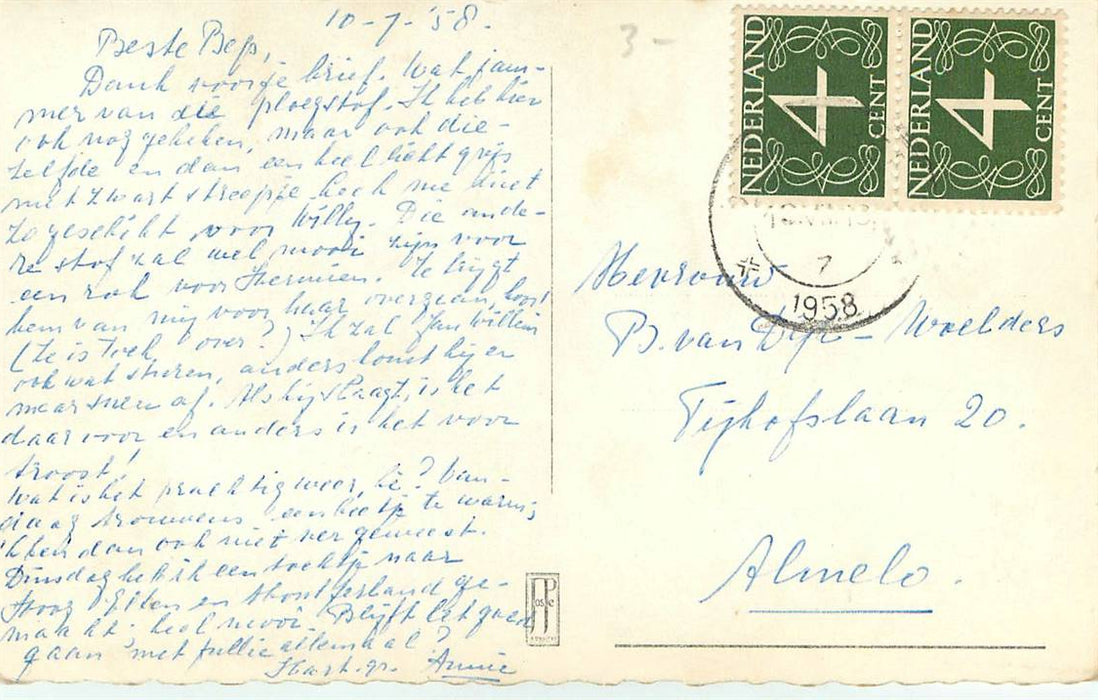 10-7-'58.
Beste Bep,
Dank voor je brief. Wat jam-
mer van die ploegstof. Ik heb hier
ook nog gekeken, maar ook die-
zelfde en dan een heel licht grijs
met zwart streepje. Leek me niet
zo geschikt voor Willy. Die ande-
re stof zal wel mooi zijn voor
een rok voor Hermien. Ze krijgt
hem van mij voor haar overgaan, hoor!
(Ze is toch over?) Ik zal Jan Willem
ook wat sturen, anders komt hij er
maar sneu af. Als hij slaagt, is het
daarvoor en anders is het voor
troost!
Wat is het prachtig weer, hè? Van-
daag trouwens een beetje te warm,
ik ben dan ook niet ver geweest.
Dinsdag heb ik een tochtje naar
Hoog Elten en Montferland ge-
maakt, heel mooi. Blijft het goed
gaan met jullie allemaal?
Hart. gr. Annie
3-
NEDERLAND
4
CENT
NEDERLAND
4
CENT
7
1958
Mevrouw
B. van Dijk - Woelders
Tijhofslaan 20.
Almelo.